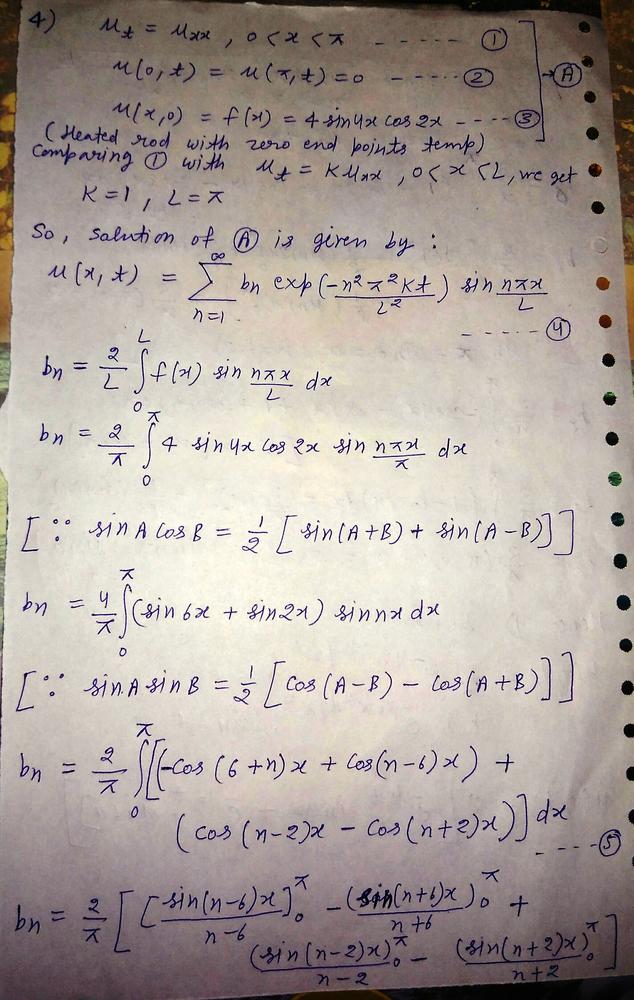 4) u_t = u_xx , 0 < x < π ----- ①
u(0, t) = u(π, t) = 0 ----- ②
u(x, 0) = f(x) = 4 sin4x cos 2x ---- ③
→ Ⓐ
(Heated rod with zero end points temp)
Comparing ① with u_t = K u_xx , 0 < x < L, we get
K = 1 , L = π
So, solution of Ⓐ is given by :
u(x, t) = ∑_{n=1}^{∞} bn exp(-n²π²Kt / L²) sin nπx / L
----- ④
bn = 2/L ∫_0^L f(x) sin nπx/L dx
bn = 2/π ∫_0^π 4 sin4x cos 2x sin nπx/π dx
[∵ sin A cos B = 1/2 [sin(A+B) + sin(A-B)]]
bn = 4/π ∫_0^π (sin 6x + sin 2x) sin nx dx
[∵ sin A sin B = 1/2 [cos(A-B) - cos(A+B)]]
bn = 2/π ∫_0^π [(-cos (6+n)x + cos(n-6)x ) +
(cos(n-2)x - cos(n+2)x)] dx
---- ⑤
bn = 2/π [ [sin(n-6)x / n-6]_0^π - (sin(n+6)x / n+6)_0^π +
(sin(n-2)x / n-2)_0^π - (sin(n+2)x / n+2)_0^π ]